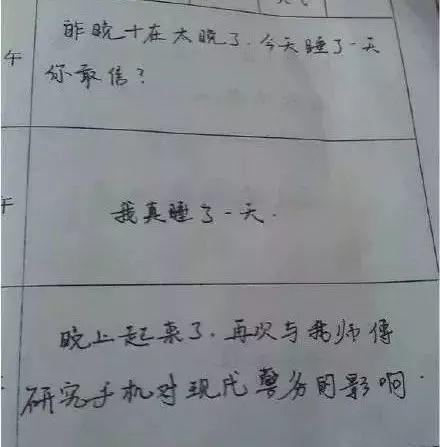 午
昨晚十在太晚了.今天睡了一天
你敢信?
午
我真睡了一天.
晚上起来了.再次与我师傅
研究手机对现代警务的影响.